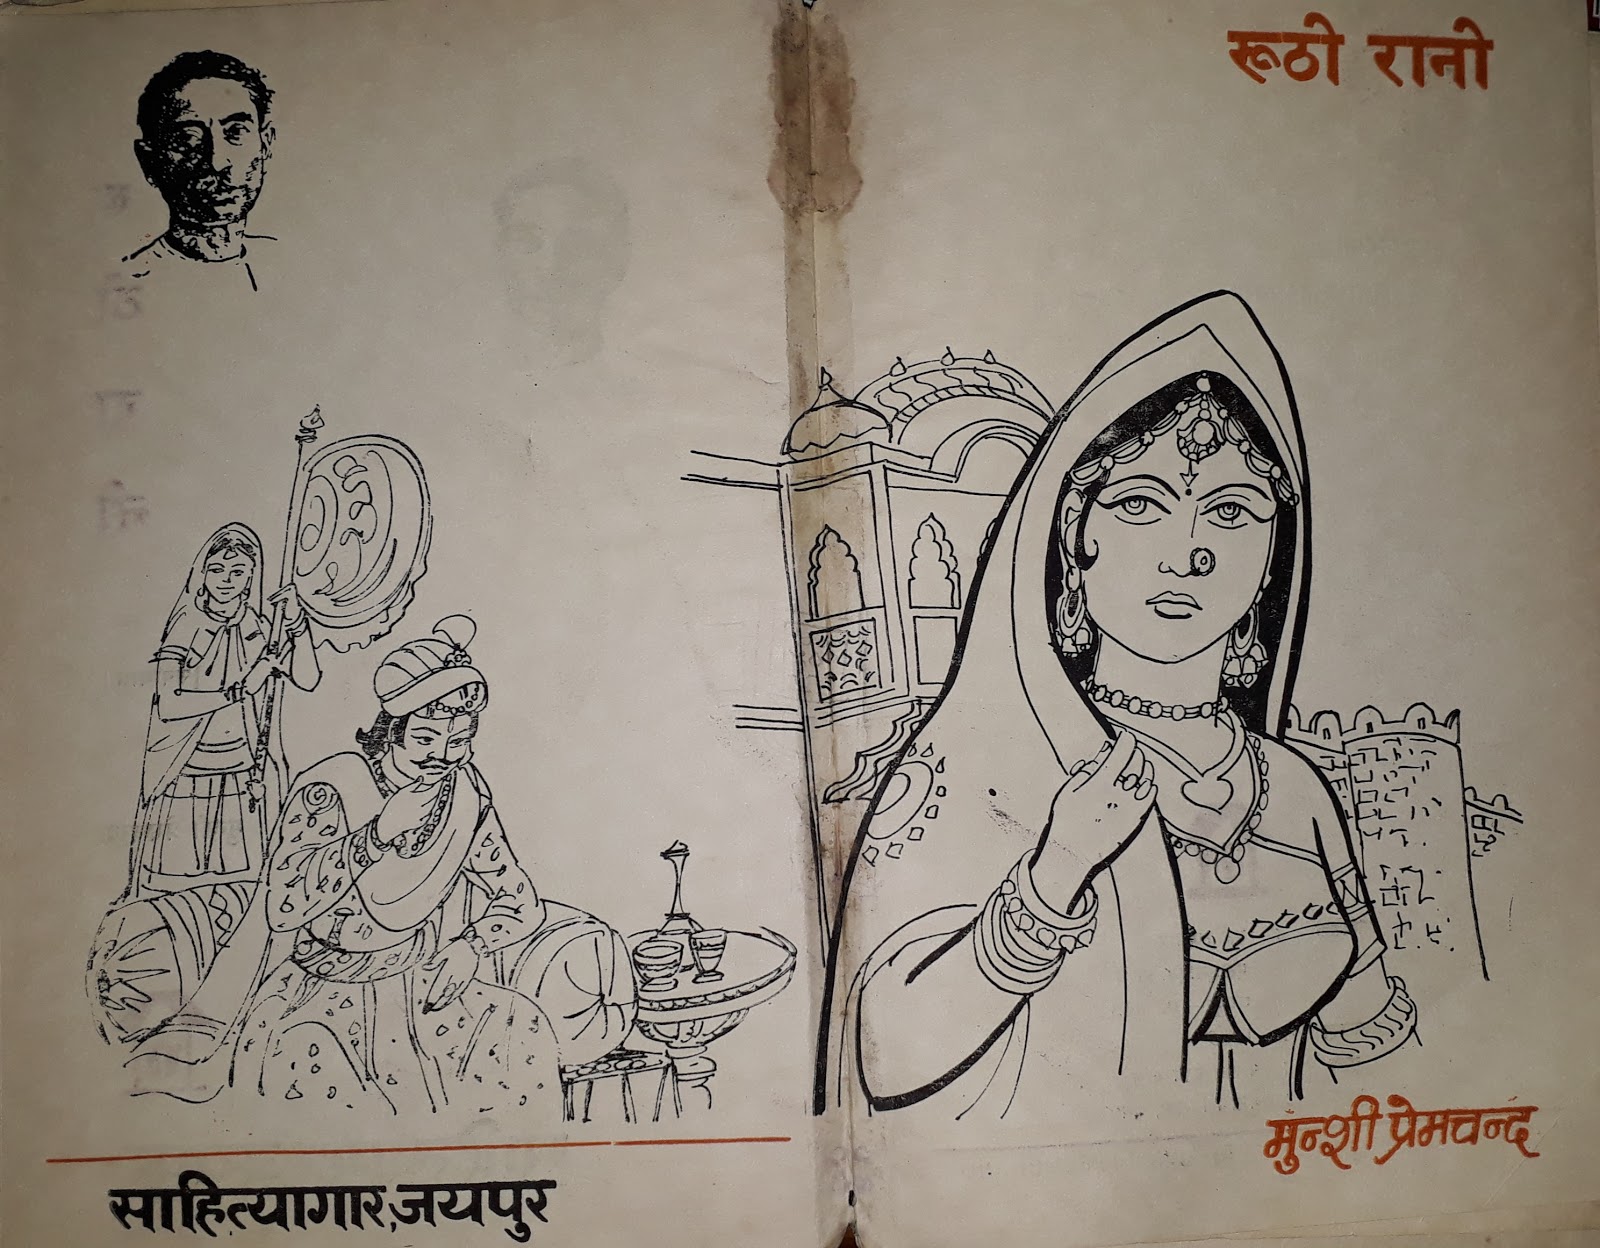 रूठी रानी
मुन्शी प्रेमचन्द
साहित्यागार, जयपुर